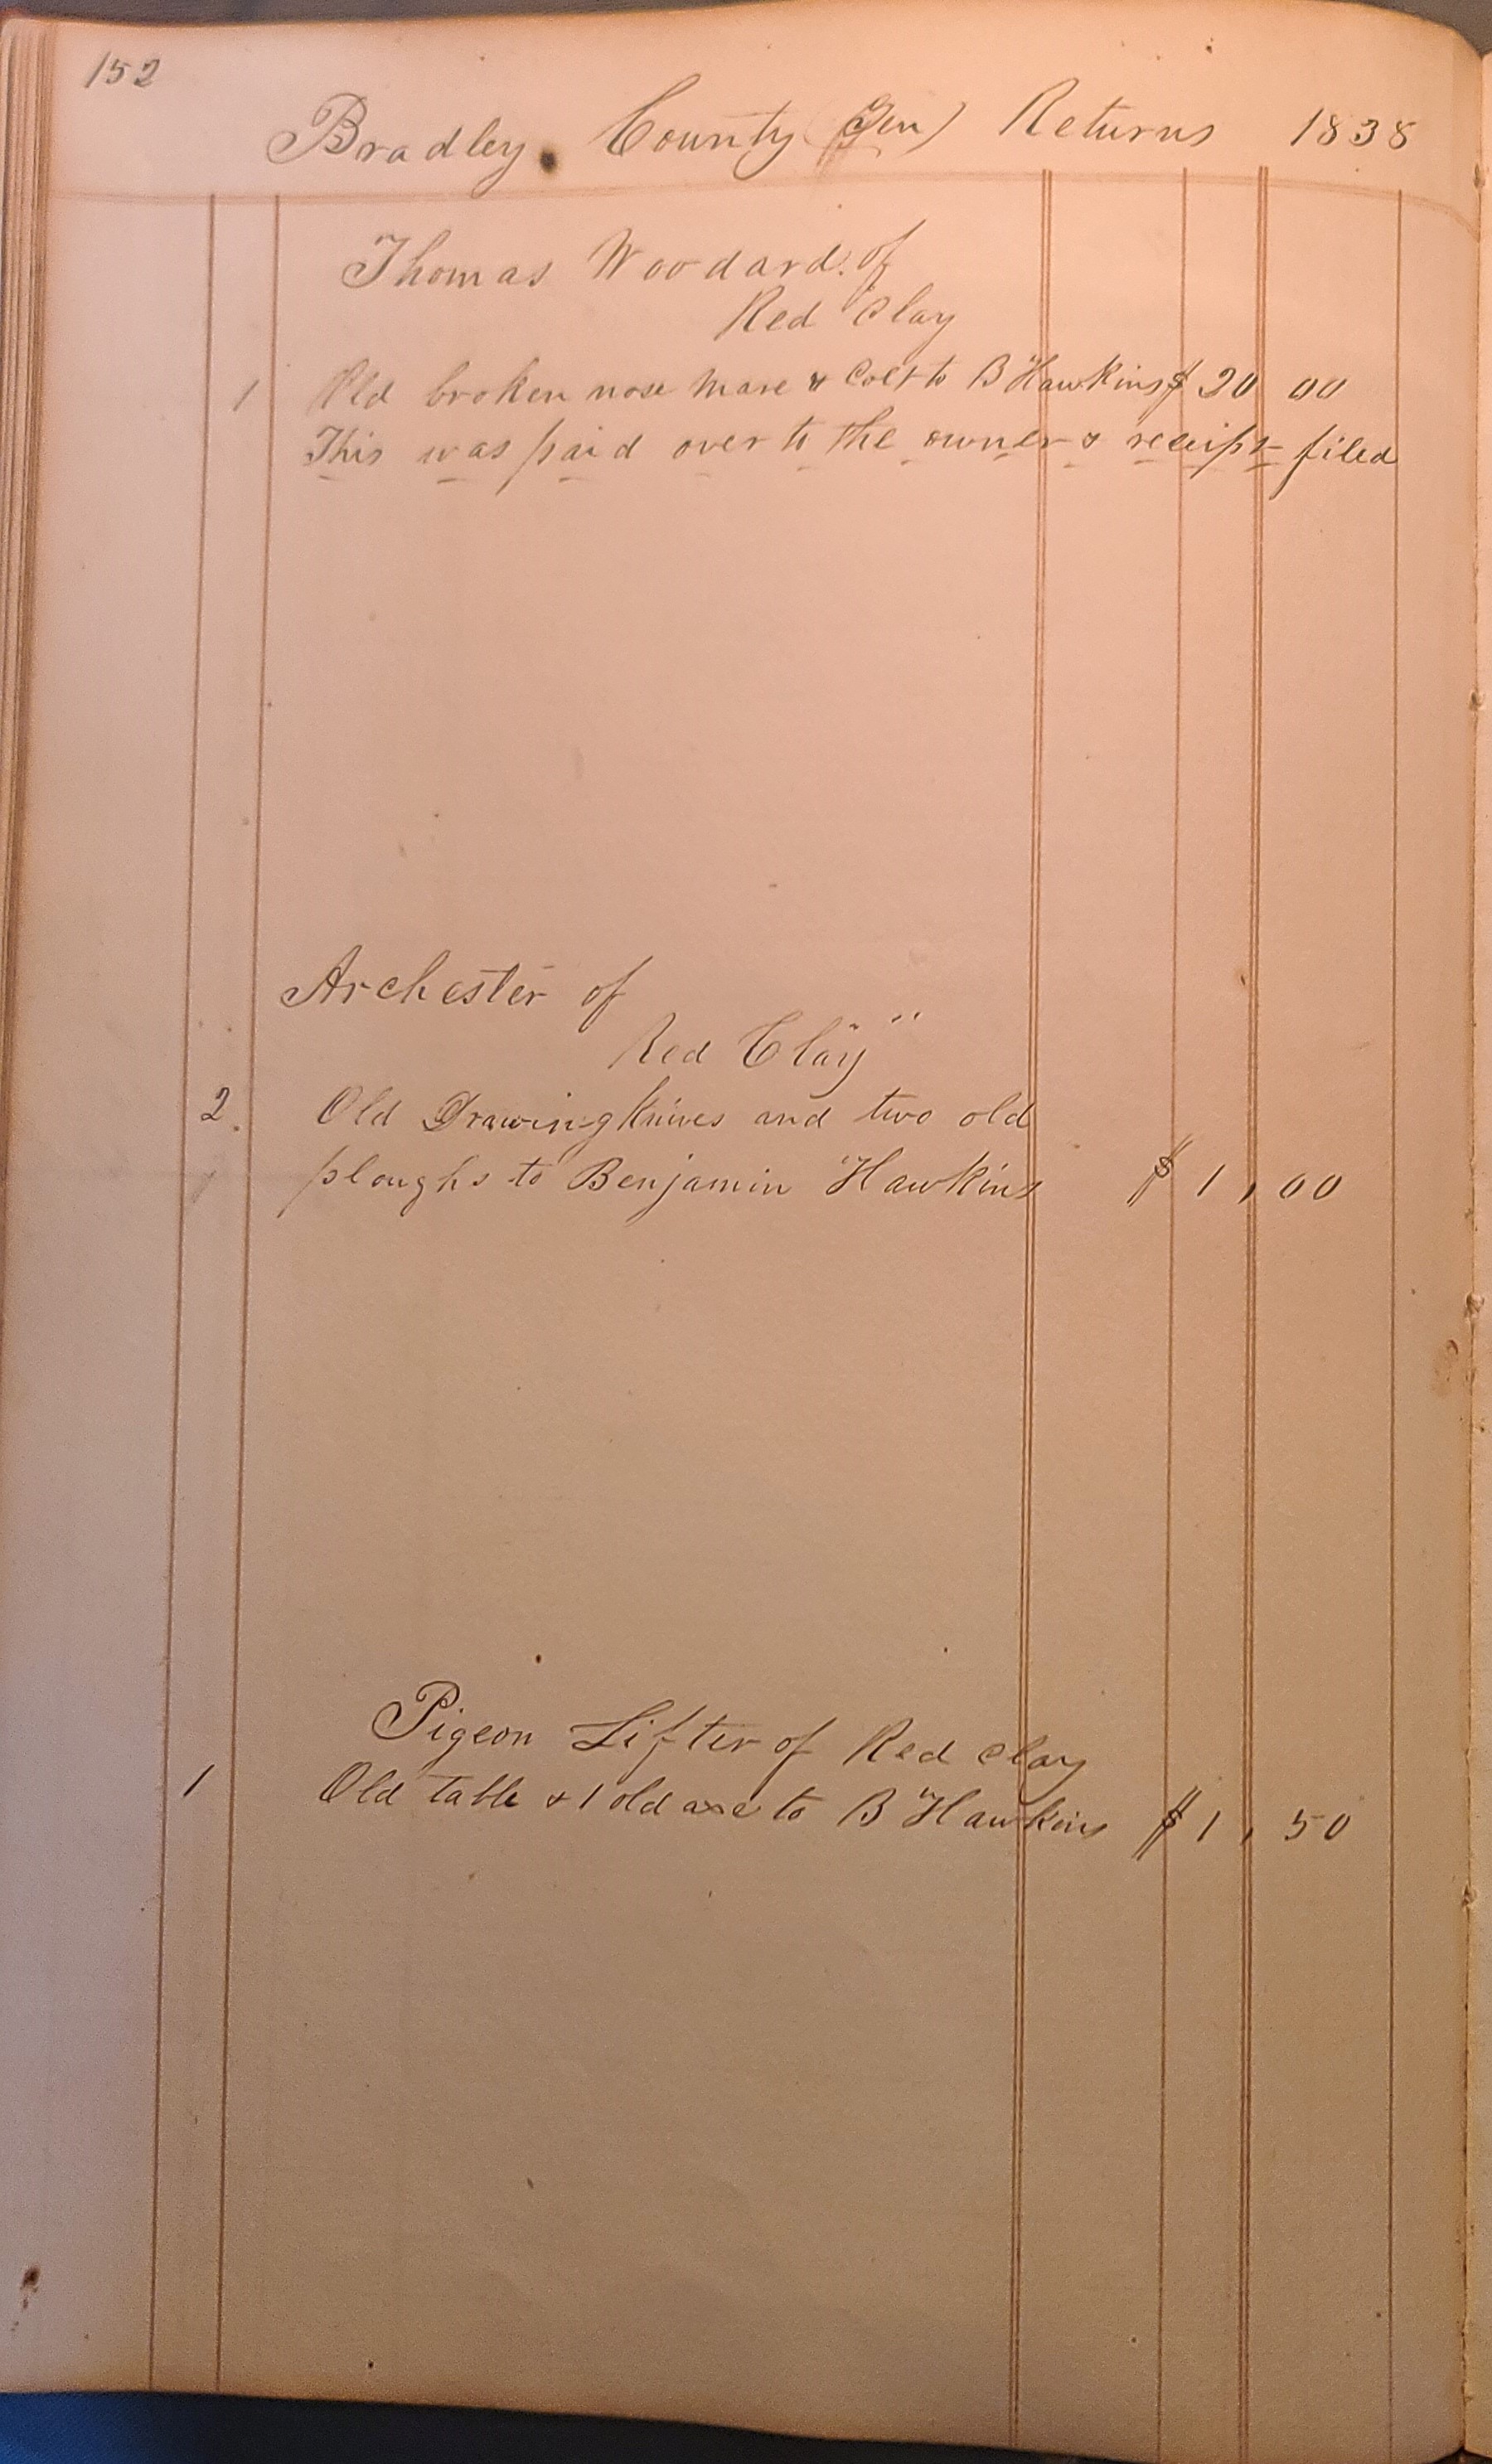 152
Bradley County (Ten) Returns 1838
Thomas Woodard of
Red Clay
1 Old broken nose mare & Colt to B Hawkins $ 20 00
This was paid over to the owner & receipt filed
Archester of
Red Clay
2 Old Drawing Knives and two old
ploughs to Benjamin Hawkins $ 1, 00
Pigeon Lifter of Red Clay
1 Old table & 1 old axe to B Hawkins $ 1, 50